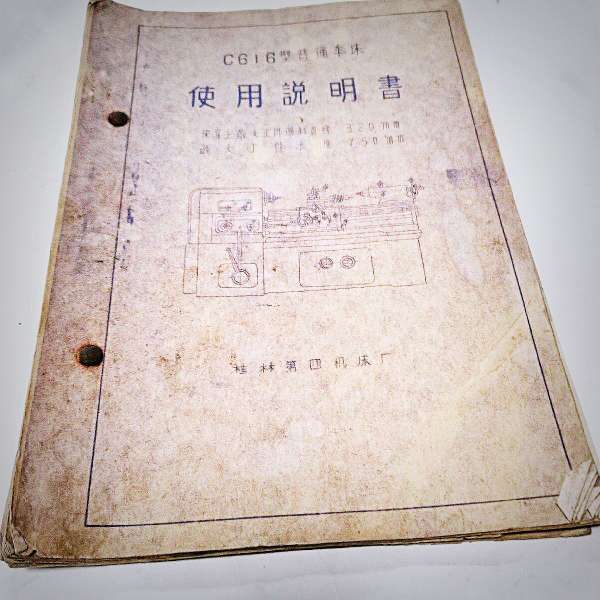 C616型普通车床
使用説明書
床身上最大工件迴轉直徑 320mm
最大工件长度 750mm
桂林第四机床厂